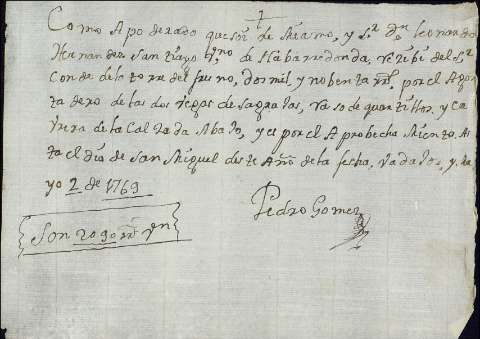 Como Apoderado que soi de mi amo, y Sr Dn Leonardo
Hernandez Santiago Vzno de Navarredonda, rezibi del Sr
Conde de la torre del fresno, dos mil y nobenta Rs por el Agos
tadero de las dos Yegas de Sagra las, Vaso de quartillos, y Ca
vreza de la Calzada Abajo, y es por el Aprobecha miento, As
ta el dia de San Miguel deste Año de la fecha, Vadajoz, y Ma
yo 2 de 1769
Pedro Gomez
Son 2090 Rs Vn